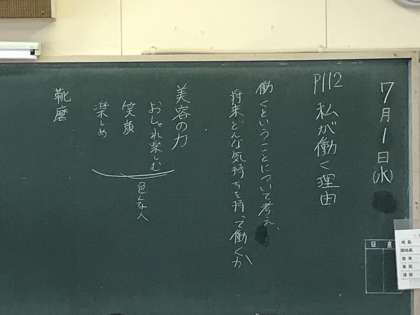 7月1日(水)
P112 私が働く理由
働くということについて考え、
将来どんな気持ちを持って働くか
美容の力
おしゃれ楽しむ
笑顔
楽しめ
色んな人
靴磨
日直